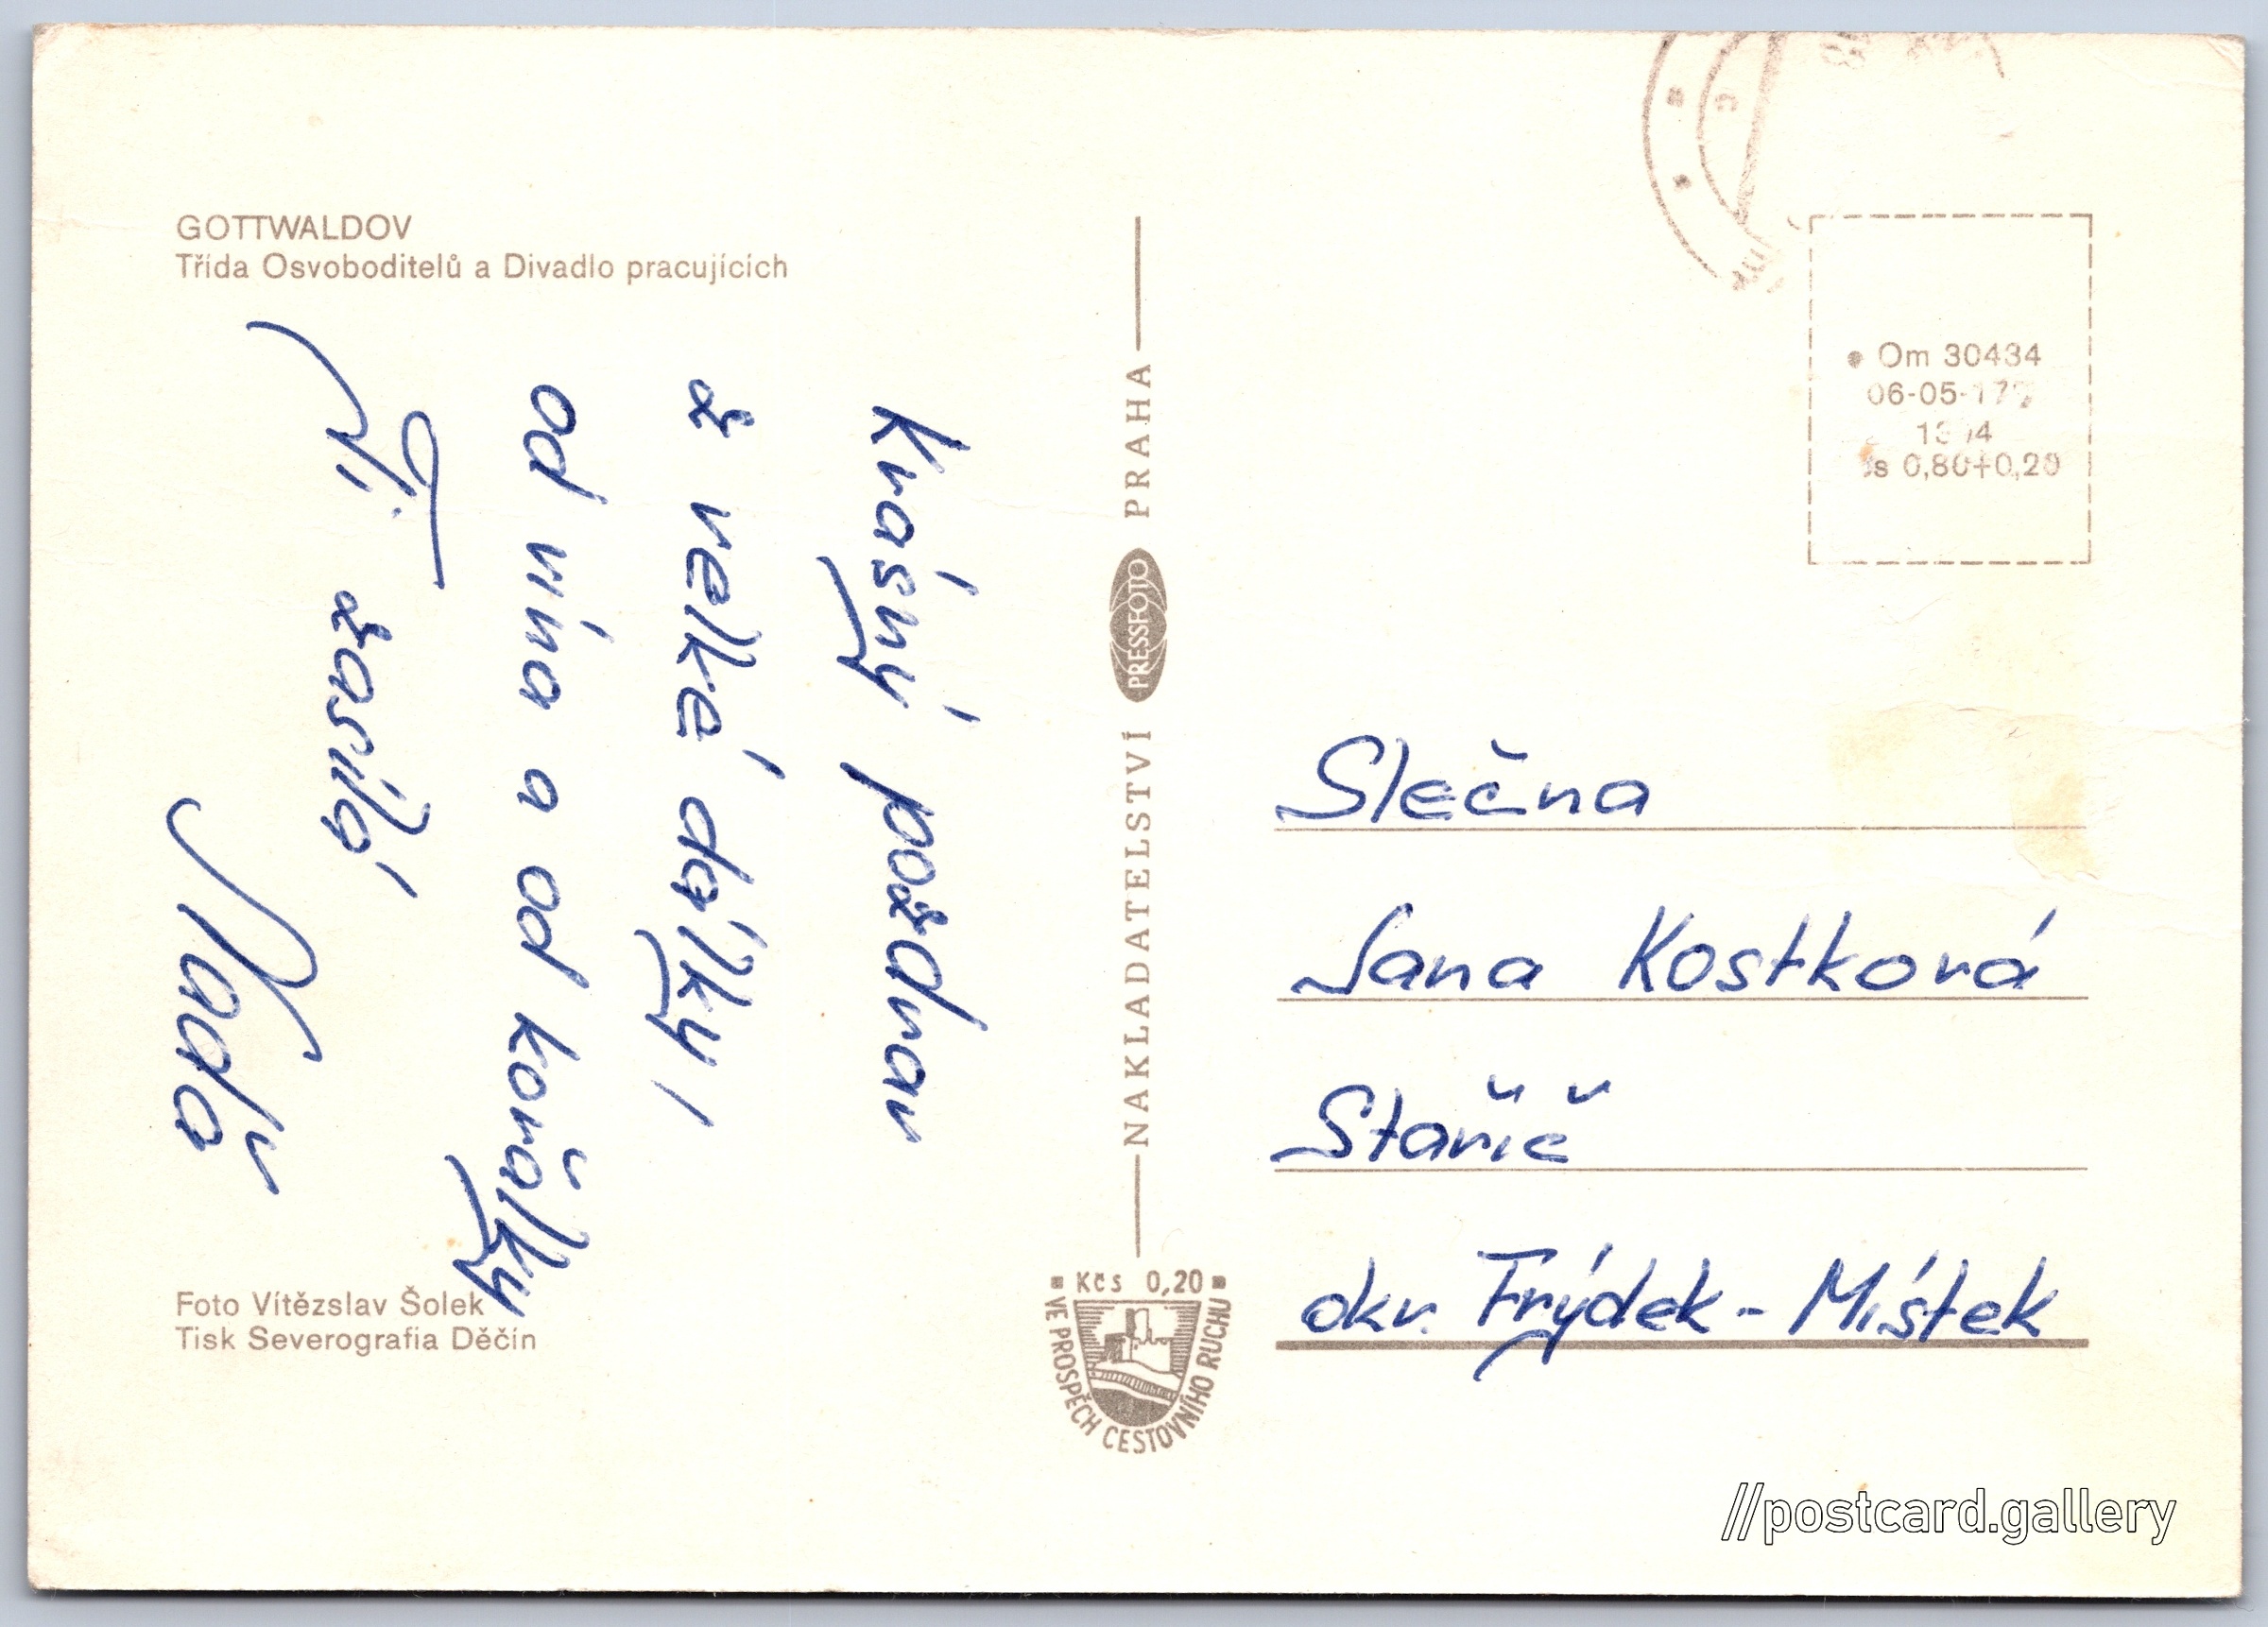 GOTTWALDOV
Třída Osvoboditelů a Divadlo pracujících
Krásný pozdrav
z velké dálky!
od vína a od kořalky
Ti zasílá
Naďa
Foto Vítězslav Šolek
Tisk Severografia Děčín
NAKLADATELSTVÍ PRESSFOTO PRAHA
Kčs 0,20
VE PROSPĚCH CESTOVNÍHO RUCHU
Om 30434
06-05-17
0,80+0,20
Slečna
Jana Kostková
Stařič
okr. Frýdek-Místek
//postcard.gallery